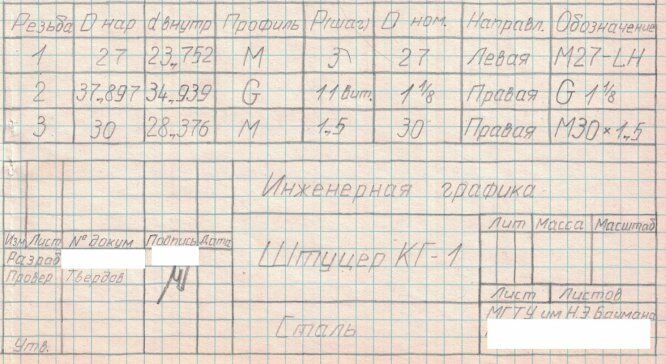 Резьба D нар d внутр Профиль P(шаг) D ном. Направл. Обозначение
1 27 23,752 М 3 27 Левая М27-LH
2 37,897 34,939 G 11 вит. 1 1/8 Правая G 1 1/8
3 30 28,376 М 1,5 30 Правая М30×1,5
Инженерная графика
Лит Масса Масштаб
Изм Лист № доким Подпись Дата
Штуцер КГ-1
Разраб
Провер Твердов
Лист Листов
Сталь
МГТУ им Н.Э Баимана
Утв.